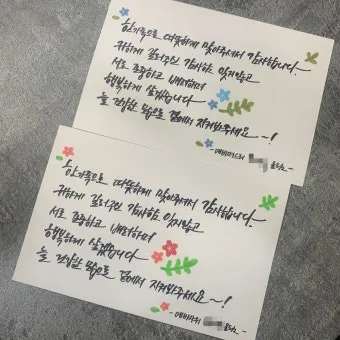 한가족으로 따뜻하게 맞아주셔서 감사합니다~
귀하게 길러주신 감사함 잊지않고
서로 존중하고 배려하며
행복하게 살겠습니다
늘 건강한 모습으로 곁에서 지켜봐주세요~!
-예비며느리 올림-
한가족으로 따뜻하게 맞아주셔서 감사합니다~
귀하게 길러주신 감사함 잊지않고
서로 존중하고 배려하며
행복하게 살겠습니다
늘 건강한 모습으로 곁에서 지켜봐주세요~!
-예비사위 올림-